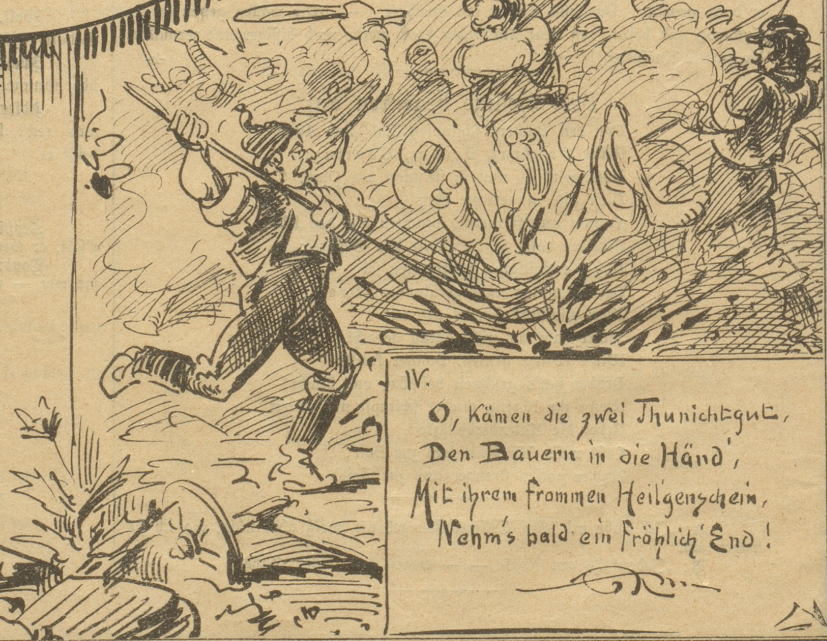 IV.
O, kämen die zwei Thunichtgut,
Den Bauern in die Händ',
Mit ihrem frommen Heil'genschein,
Nehm's bald ein fröhlich' End!